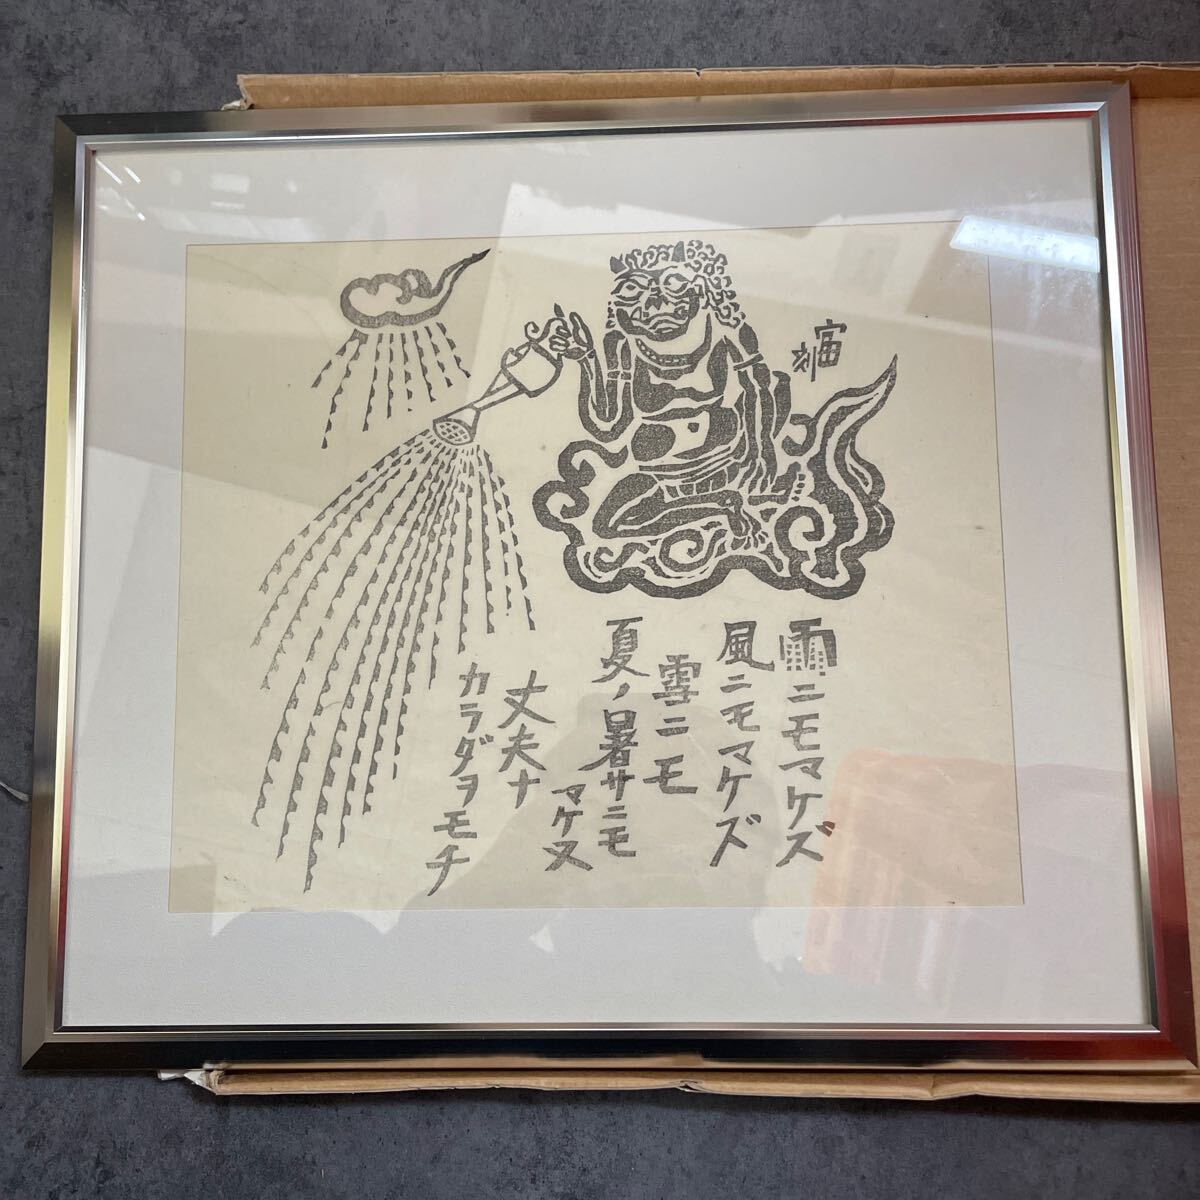 雨ニモマケズ
風ニモマケズ
雪ニモ
夏ノ暑サニモ
マケヌ
丈夫ナ
カラダヲモチ
刻